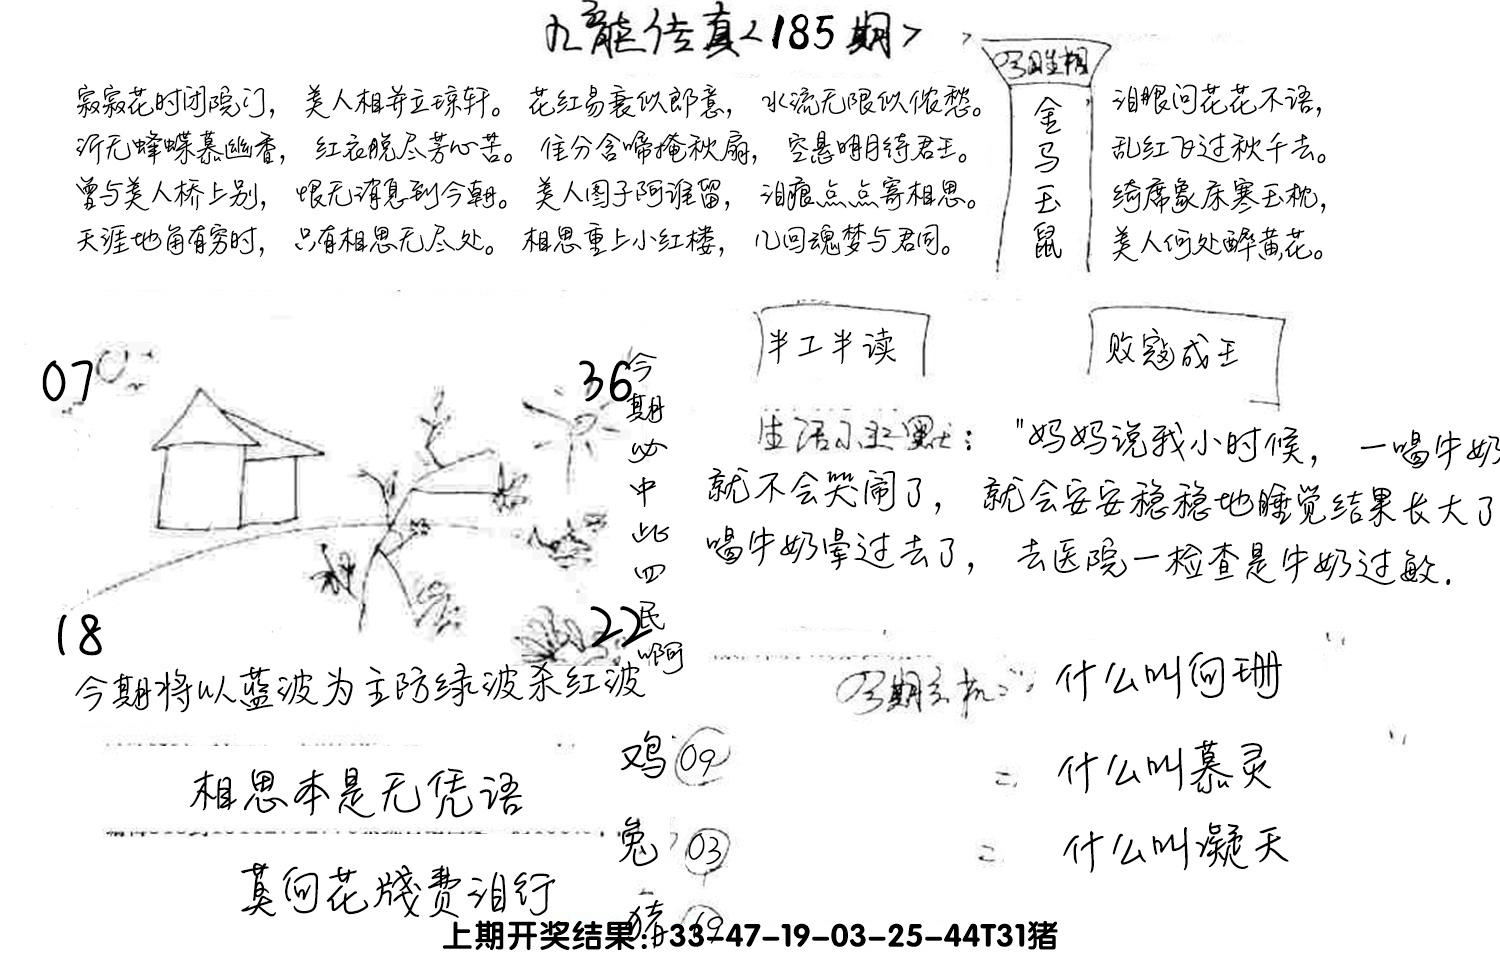 九龙传真<185期>
寂寂花时闭院门，美人相并立琼轩。花红易衰似郎意，水流无限似侬愁。
沂无蜂蝶慕幽香，红衣脱尽芳心苦。佳分含啼掩秋扇，空悬明月待君王。
曾与美人桥上别，恨无消息到今朝。美人图子阿谁留，泪痕点点寄相思。
天涯地角有穷时，只有相思无尽处。相思重上小红楼，几回魂梦与君同。
金
马
玉
鼠
泪眼问花花不语，
乱红飞过秋千去。
绮席象床寒玉枕，
美人何处醉黄花。
半工半读
败寇成王
07
36
18
22
今期必中此四民啊
生活幽默："妈妈说我小时候，一喝牛奶
就不会哭闹了，就会安安稳稳地睡觉结果长大了
喝牛奶晕过去了，去医院一检查是牛奶过敏.
今期将以蓝波为主防绿波杀红波
相思本是无凭语
莫向花牋费泪行
鸡 09
兔 03
猪 19
今期玄机: 什么叫向珊
= 什么叫慕灵
= 什么叫凝天
上期开奖结果：33-47-19-03-25-44T31猪